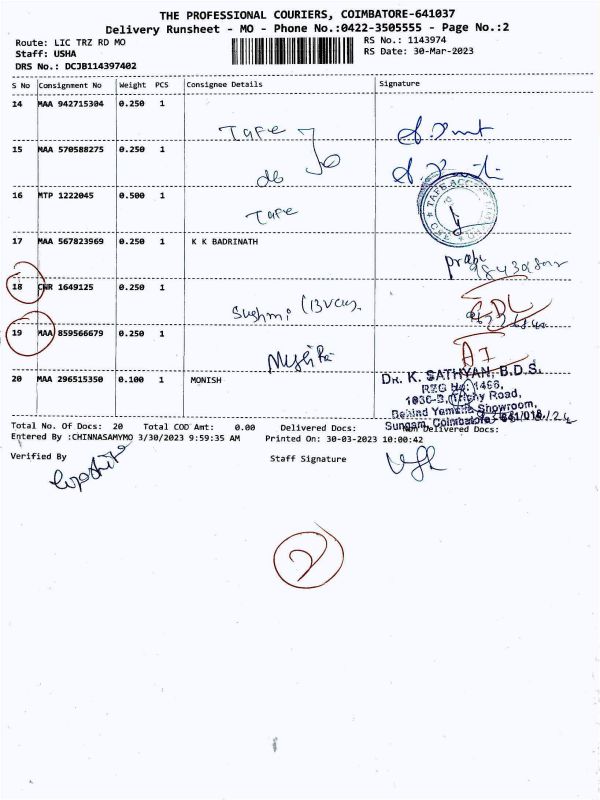 THE PROFESSIONAL COURIERS, COIMBATORE-641037
Delivery Runsheet - MO - Phone No.:0422-3505555 - Page No.:2
Route: LIC TRZ RD MO
RS No.: 1143974
Staff: USHA
RS Date: 30-Mar-2023
DRS No.: DCJB114397402
S No Consignment No Weight PCS Consignee Details Signature
14 MAA 942715304 0.250 1
Tafe
15 MAA 570588275 0.250 1
do
16 MTP 1222045 0.500 1
Tafe
17 MAA 567823969 0.250 1 K K BADRINATH
18 CWR 1649125 0.250 1
Sushmi
19 MAA 859566679 0.250 1
20 MAA 296515350 0.100 1 MONISH
DR. K. SATHYAN, B.D.S.
REG No: 1468,
1036-B, Trichy Road,
Behind Yamaha Showroom,
Sungam, Coimbatore
Total No. Of Docs: 20 Total COD Amt: 0.00 Delivered Docs: Non Delivered Docs:
Entered By :CHINNASAMYMO 3/30/2023 9:59:35 AM Printed On: 30-03-2023 10:00:42
Verified By Staff Signature
2